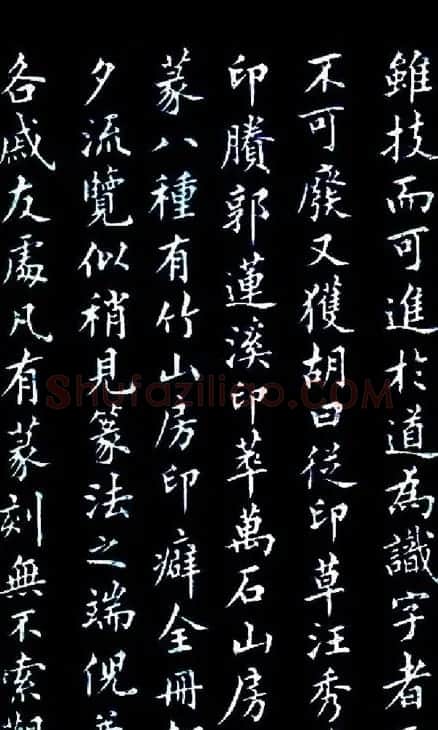 雖技而可進於道為識字者
不可廢又獲胡曰從印草汪秀
印賸郭蓮溪印萃萬石山房
篆八種有竹山房印癖全冊
夕流覽似稍見篆法之端倪
各戚友處凡有篆刻無不索觀
Shufaziliao.COM